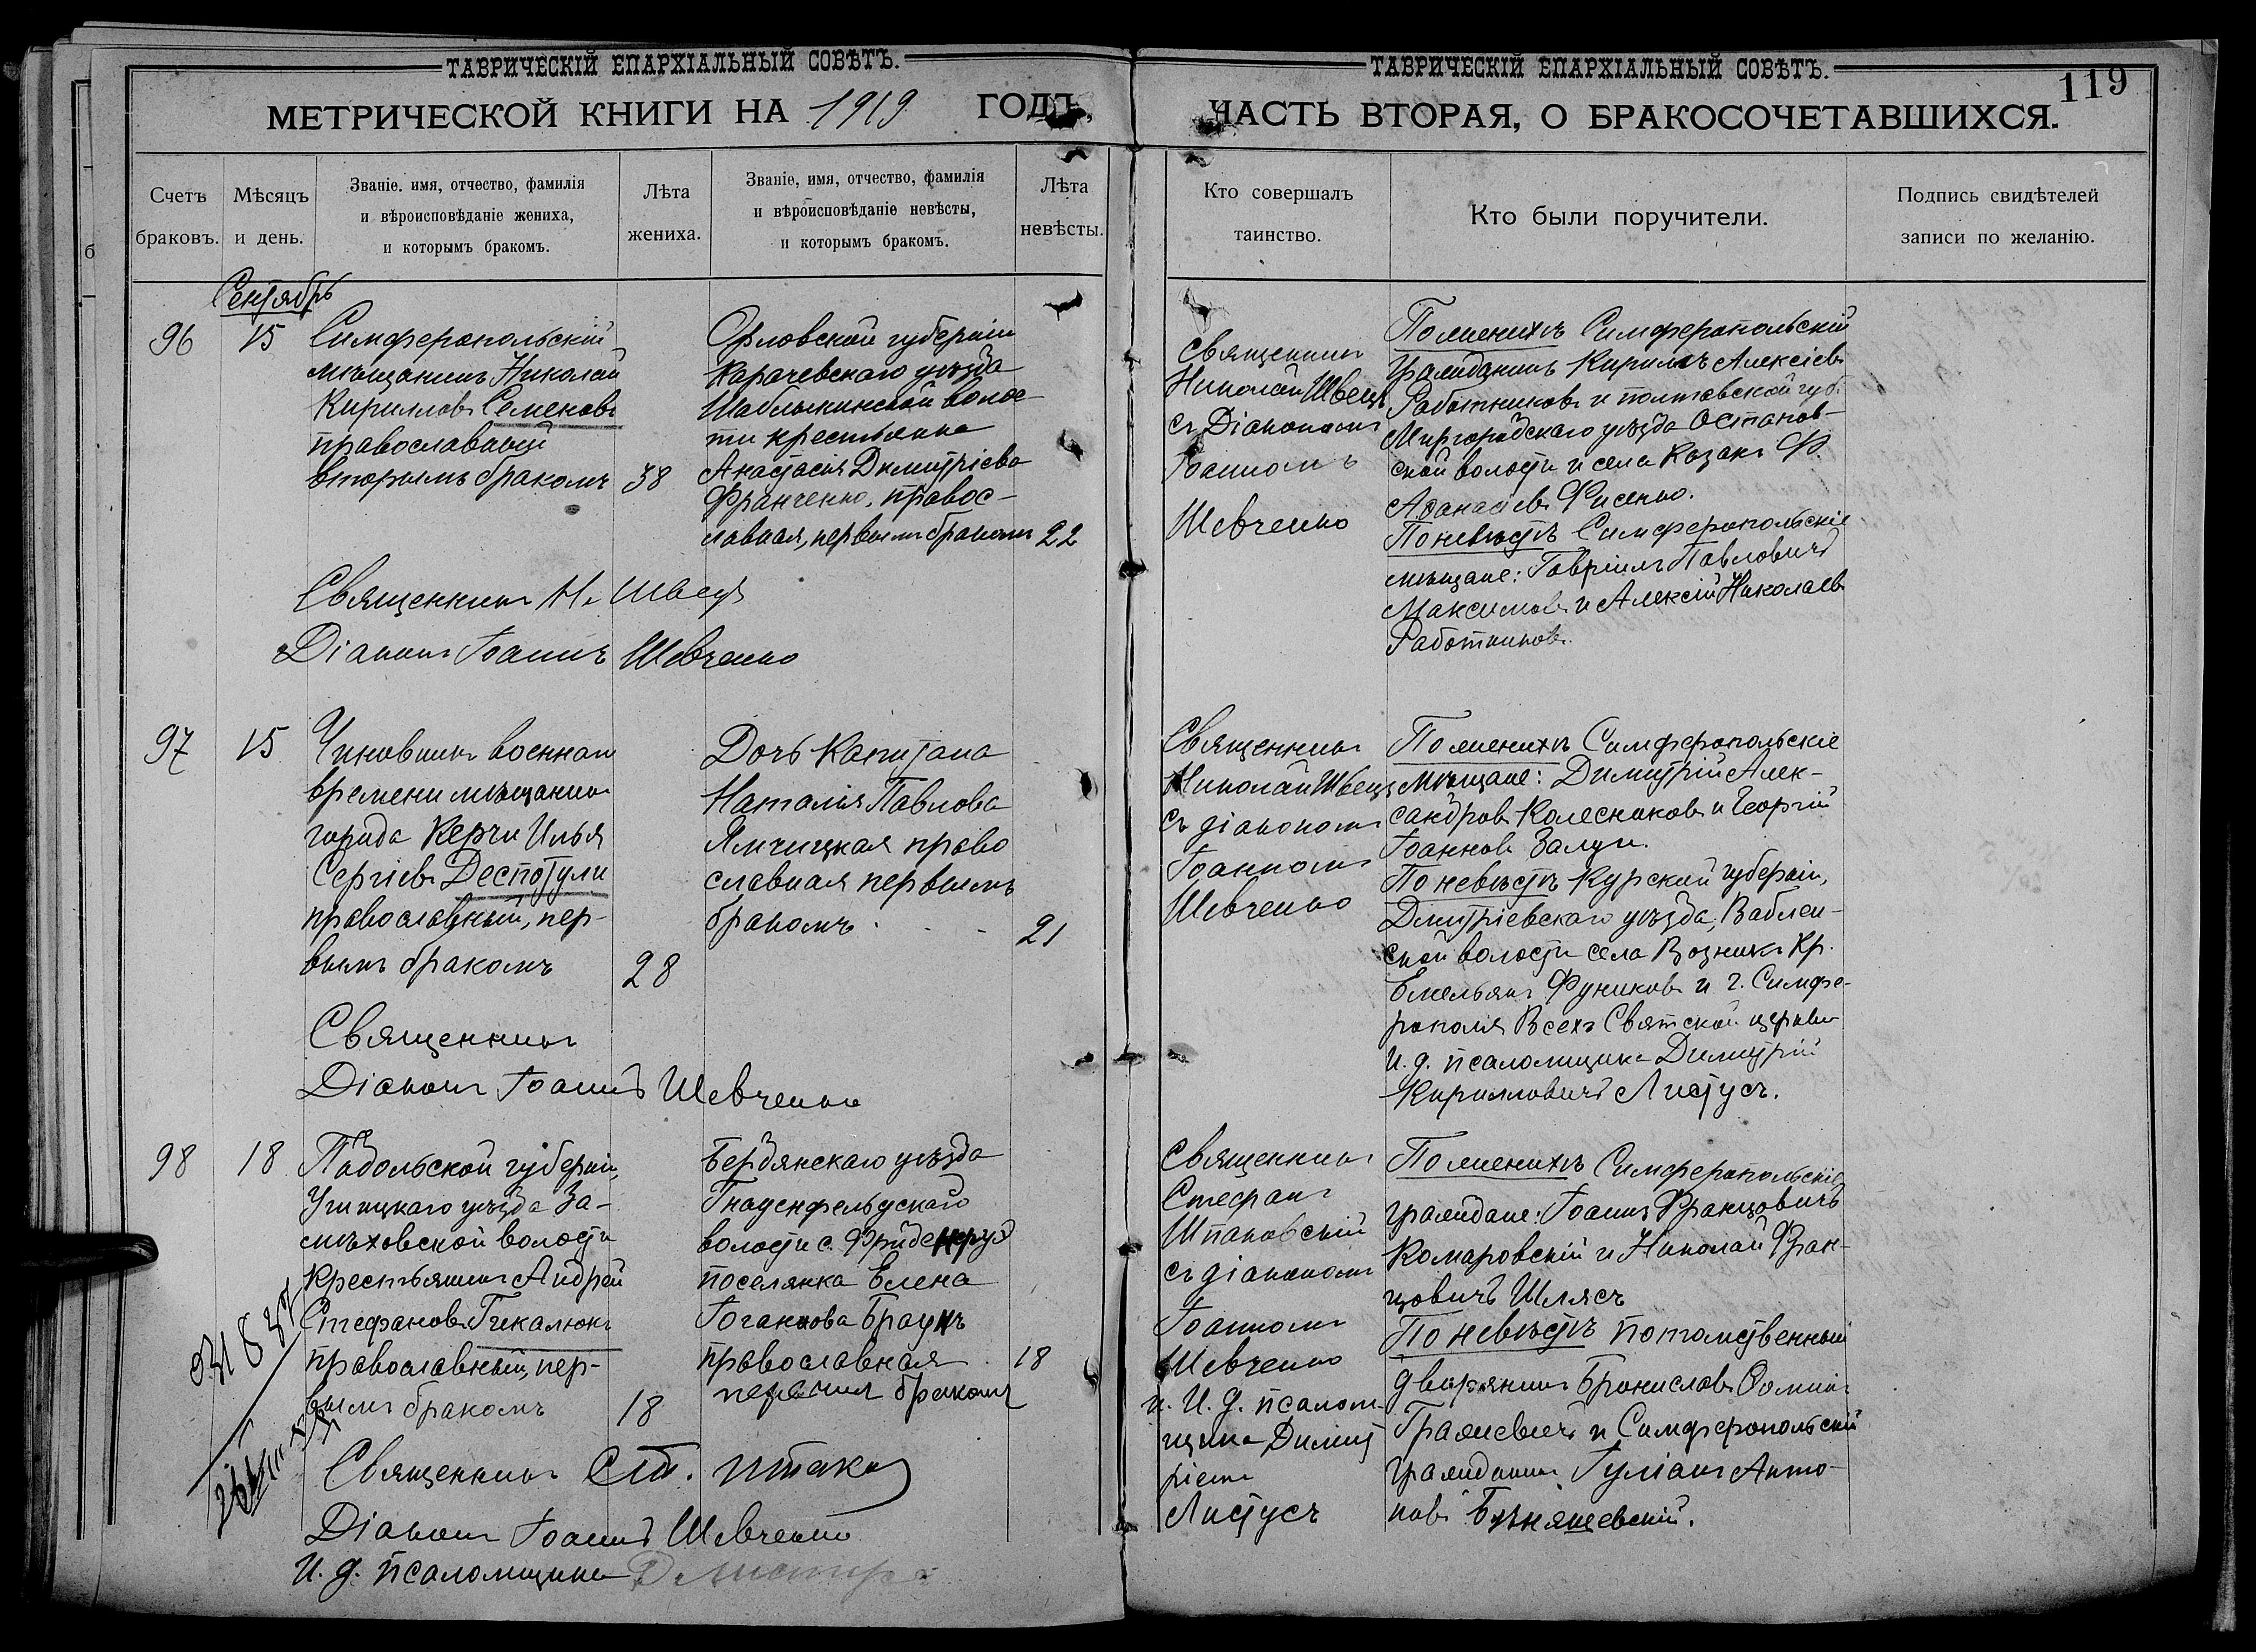 ТАВРИЧЕСКІЙ ЕПАРХІАЛЬНЫЙ СОВѢТЪ.
МЕТРИЧЕСКОЙ КНИГИ НА 1919 ГОДЪ,
Счетъ браковъ.
Мѣсяцъ и день.
Званіе, имя, отчество, фамилія
и вѣроисповѣданіе жениха,
и которымъ бракомъ.
Лѣта жениха.
Званіе, имя, отчество, фамилія
и вѣроисповѣданіе невѣсты,
и которымъ бракомъ.
Лѣта невѣсты.
Сентябрь
96
15
Симферопольскій
мѣщанинъ Николай
Кирилловъ Семеновъ
православный
вторымъ бракомъ
38
Орловской губерніи
Карачевскаго уѣзда
Шаблыкинской волос-
ти крестьянка
Анастасія Димитріева
Франченко, правос-
лавная, первымъ бракомъ
22
Священникъ Н. Швецъ
Діаконъ Іоаннъ Шевченко
97
15
Чиновникъ военнаго
времени мѣщанинъ
города Керчи Илья
Сергіевъ Деспотули
православный, пер-
вымъ бракомъ
28
Дочь Капитана
Наталія Павлова
Ямчицкая право
славная первымъ
бракомъ
21
Священникъ
Діаконъ Іоаннъ Шевченко
98
18
Подольской губерніи,
Ушицкаго уѣзда За-
мѣховской волости
крестьянинъ Андрей
Стефановъ Гикалюкъ
православный, пер-
вымъ бракомъ
18
Бердянскаго уѣзда
Гнаденфельдскаго
волости с.
поселянка Елена
Іоганнова Браунъ
православная
первымъ бракомъ
18
Священникъ Ст.
Діаконъ Іоаннъ Шевченко
И. д. псаломщика
ТАВРИЧЕСКІЙ ЕПАРХІАЛЬНЫЙ СОВѢТЪ.
119
ЧАСТЬ ВТОРАЯ, О БРАКОСОЧЕТАВШИХСЯ.
Кто совершалъ
таинство.
Кто были поручители.
Подпись свидѣтелей
записи по желанію.
Священникъ
Николай Швецъ
съ Діакономъ
Іоанномъ
Шевченко
По женихѣ Симферопольскій
гражданинъ Кириллъ Алексіевъ
Работниковъ и полтавской губ.
Миргородскаго уѣзда Остапов-
ской волости и села Казакъ Ф.
Аѳанасіевъ Фисенко.
По невѣстѣ Симферопольскіе
мѣщане: Гавріилъ Павловичъ
Максимовъ и Алексій Николаевъ
Работниковъ.
Священникъ
Николай Швецъ
съ діакономъ
Іоанномъ
Шевченко
По женихѣ Симферопольскіе
мѣщане: Димитрій Алек-
сандровъ Колесниковъ и Георгій
Іоанновъ
По невѣстѣ Курской губерніи,
Дмитріевскаго уѣзда,
ской волости села Кр.
Емельянъ Фуниковъ и г. Симфе-
рополя Всехъ Святской церкви
И. д. псаломщика Димитрій
Кирилловичъ Листусъ.
Священникъ
Стефанъ
Шпаковскій
съ діакономъ
Іоанномъ
Шевченко
и. И. д. псалом-
щика Димит
ріемъ
Листусъ
По женихѣ Симферопольскіе
граждане: Іоаннъ Францовичъ
Комаровскій и Николай Фран-
цовичъ Шлясъ
По невѣстѣ потомственный
дворянинъ Брониславъ
и Симферопольскій
гражданинъ Іуліанъ Анто-
новъ